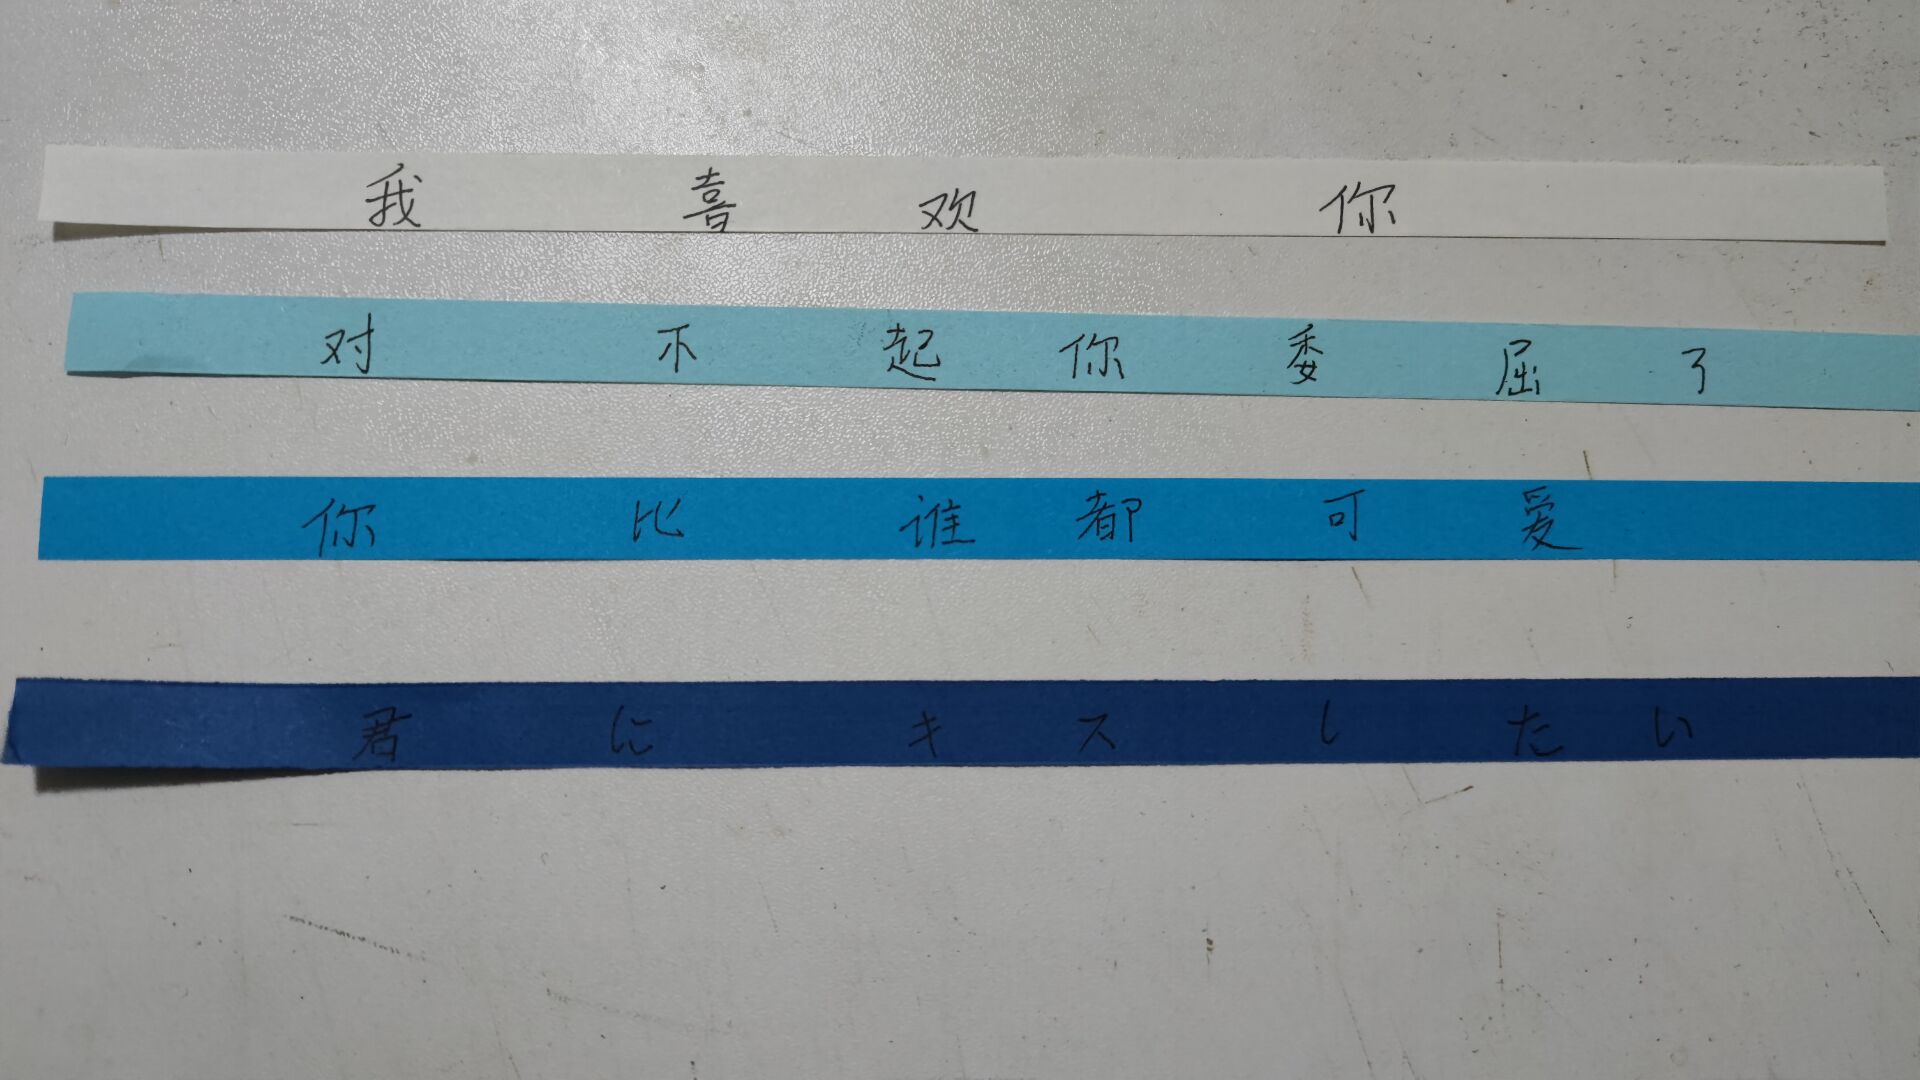 我喜欢你
对不起你委屈了
你比谁都可爱
君にキスしたい